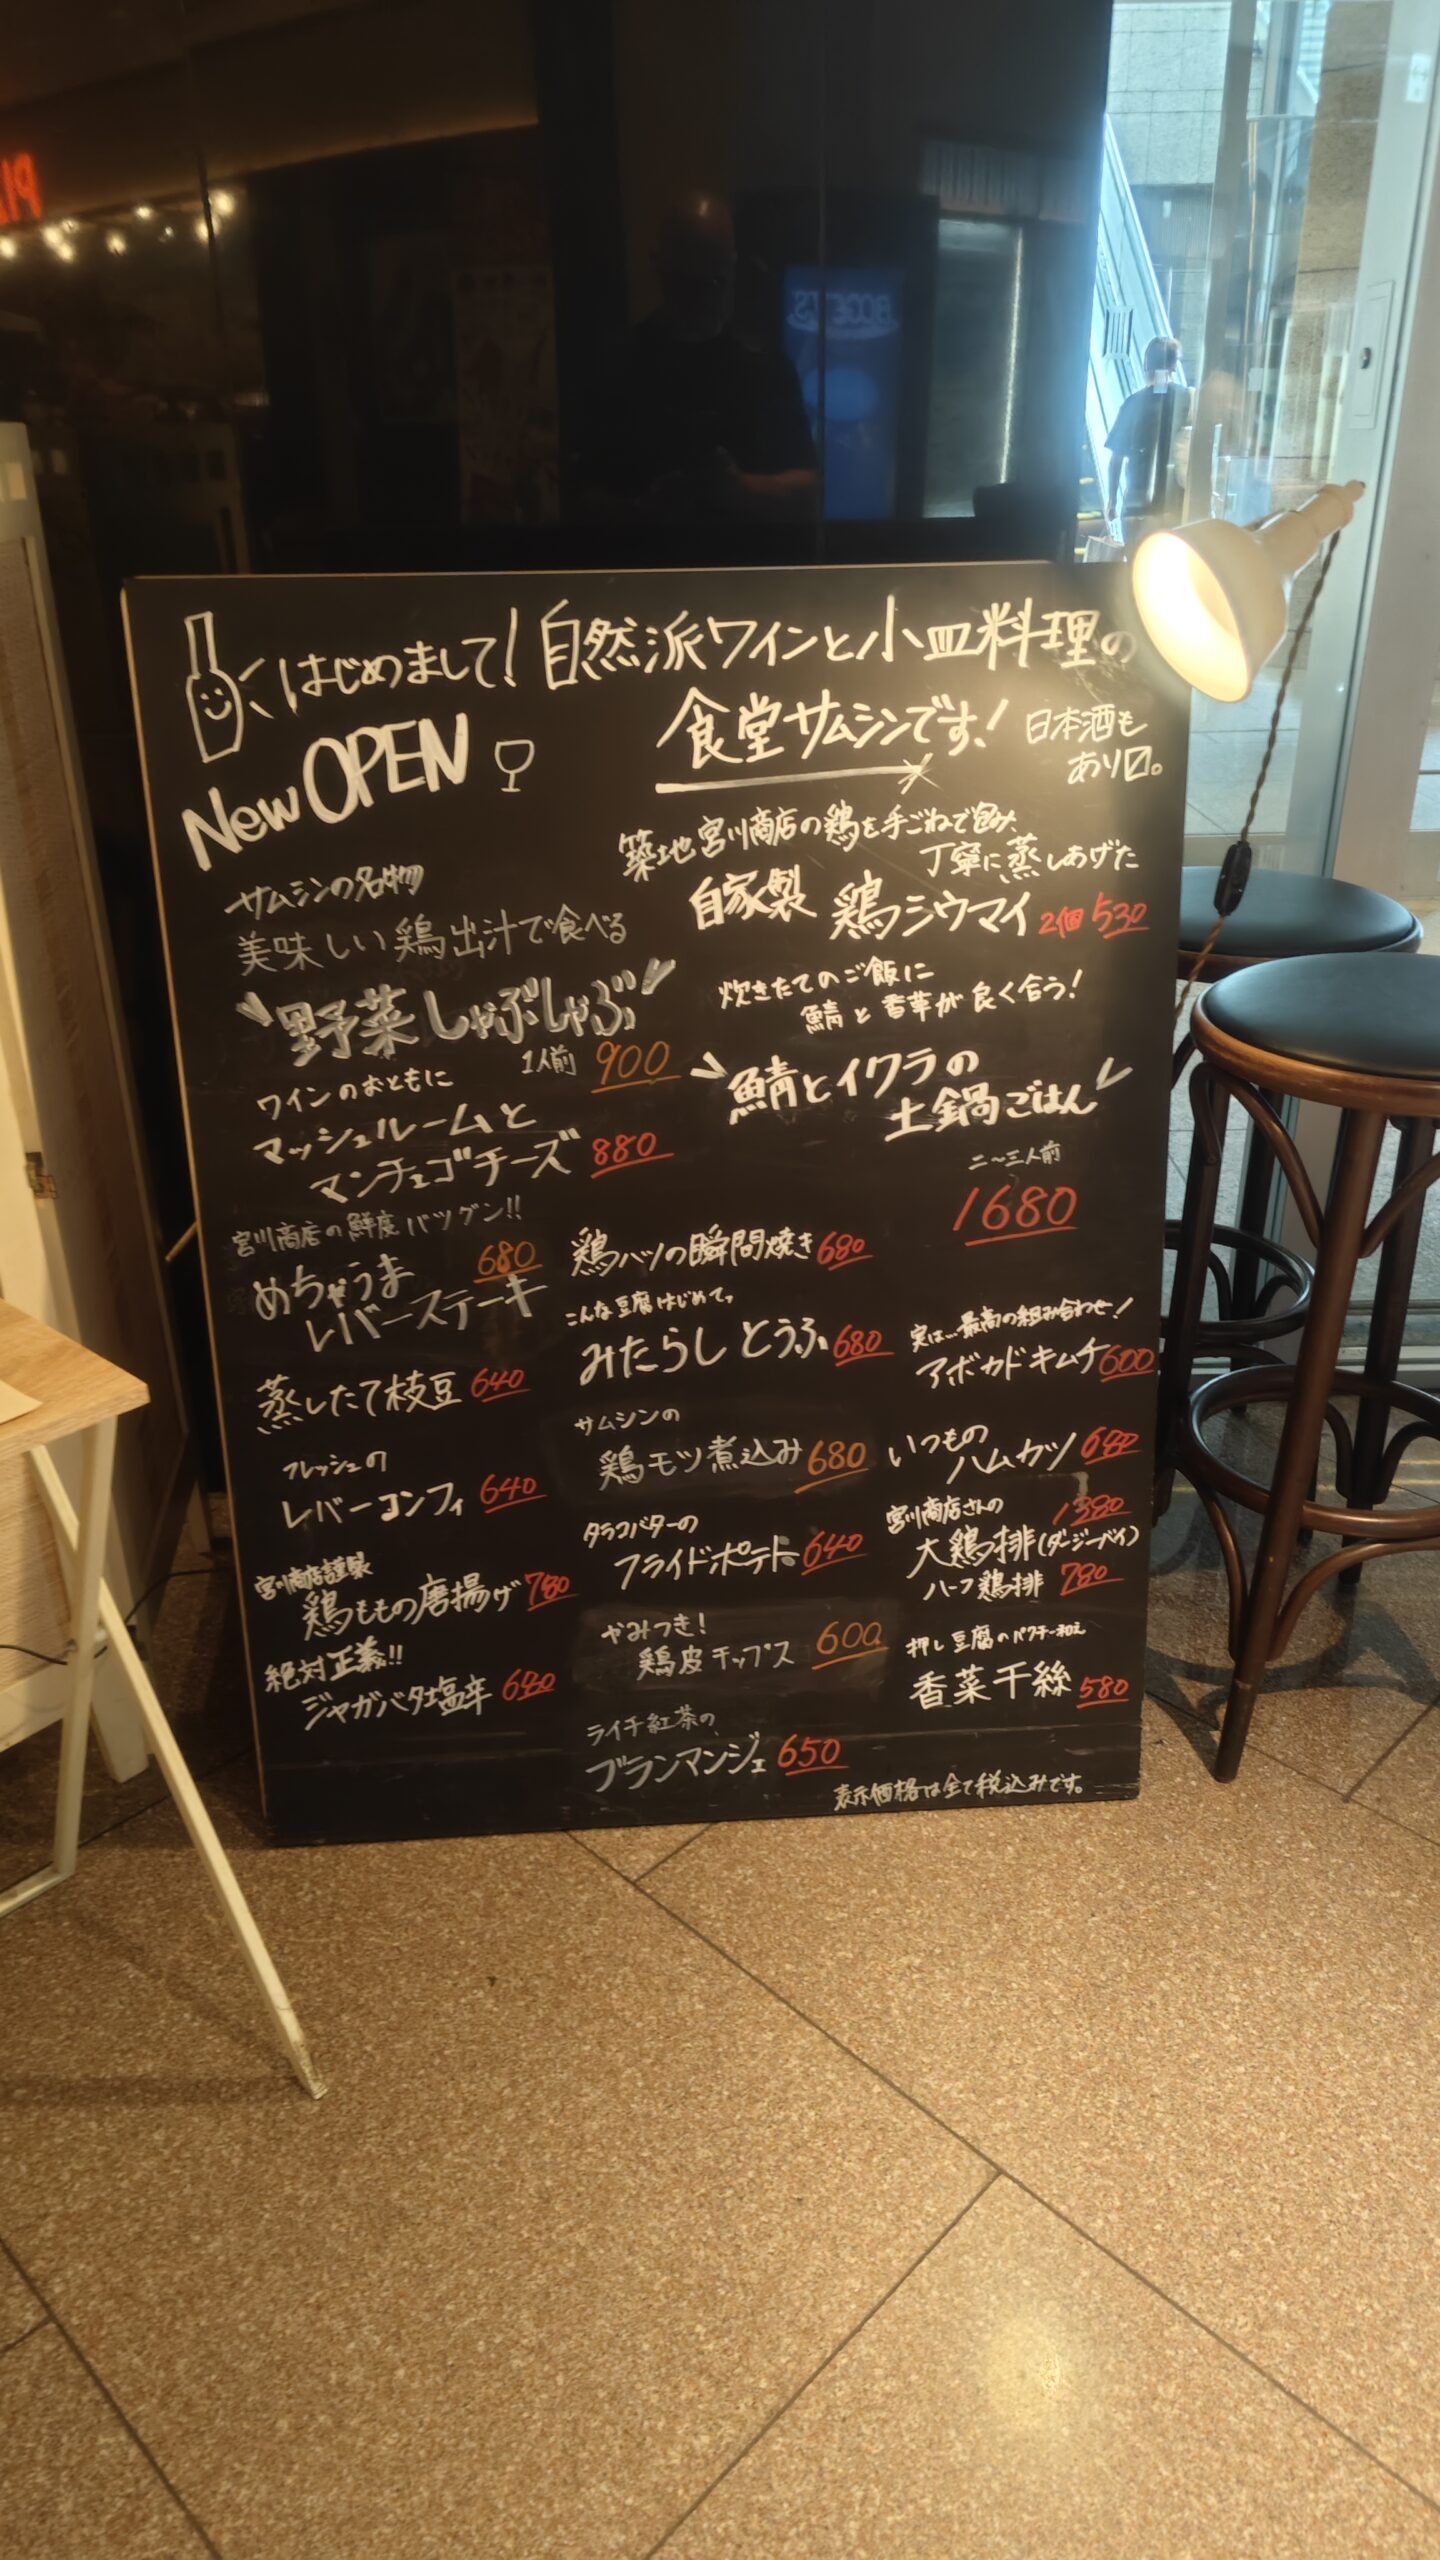 はじめまして！自然派ワインと小皿料理の
食堂サムシンです！
日本酒も
あり〼。
New OPEN
サムシンの名物
美味しい鶏出汁で食べる
野菜しゃぶしゃぶ
1人前 900
ワインのおともに
マッシュルームと
マンチェゴチーズ 880
宮川商店の鮮度バツグン!!
めちゃうま 680
レバーステーキ
蒸したて枝豆 640
フレッシュの
レバーコンフィ 640
宮川商店謹製
鶏ももの唐揚げ 780
絶対正義!!
ジャガバタ塩辛 640
築地宮川商店の鶏を手ごねで包み、
丁寧に蒸しあげた
自家製 鶏シウマイ 2個 530
炊きたてのご飯に
鯖と香草が良く合う！
鯖とイクラの
土鍋ごはん
二〜三人前
1680
鶏ハツの瞬間焼き 680
こんな豆腐はじめて。
みたらしとうふ 680
サムシンの
鶏モツ煮込み 680
タラコバターの
フライドポテト 640
やみつき！
鶏皮チップス 600
ライチ紅茶の
ブランマンジェ 650
実は…最高の組み合わせ！
アボカドキムチ 600
いつもの
ハムカツ
宮川商店さんの 1380
大鶏排(ダージーパイ)
ハーフ鶏排 780
押し豆腐のパクチー和え
香菜干絲 580
表示価格は全て税込みです。